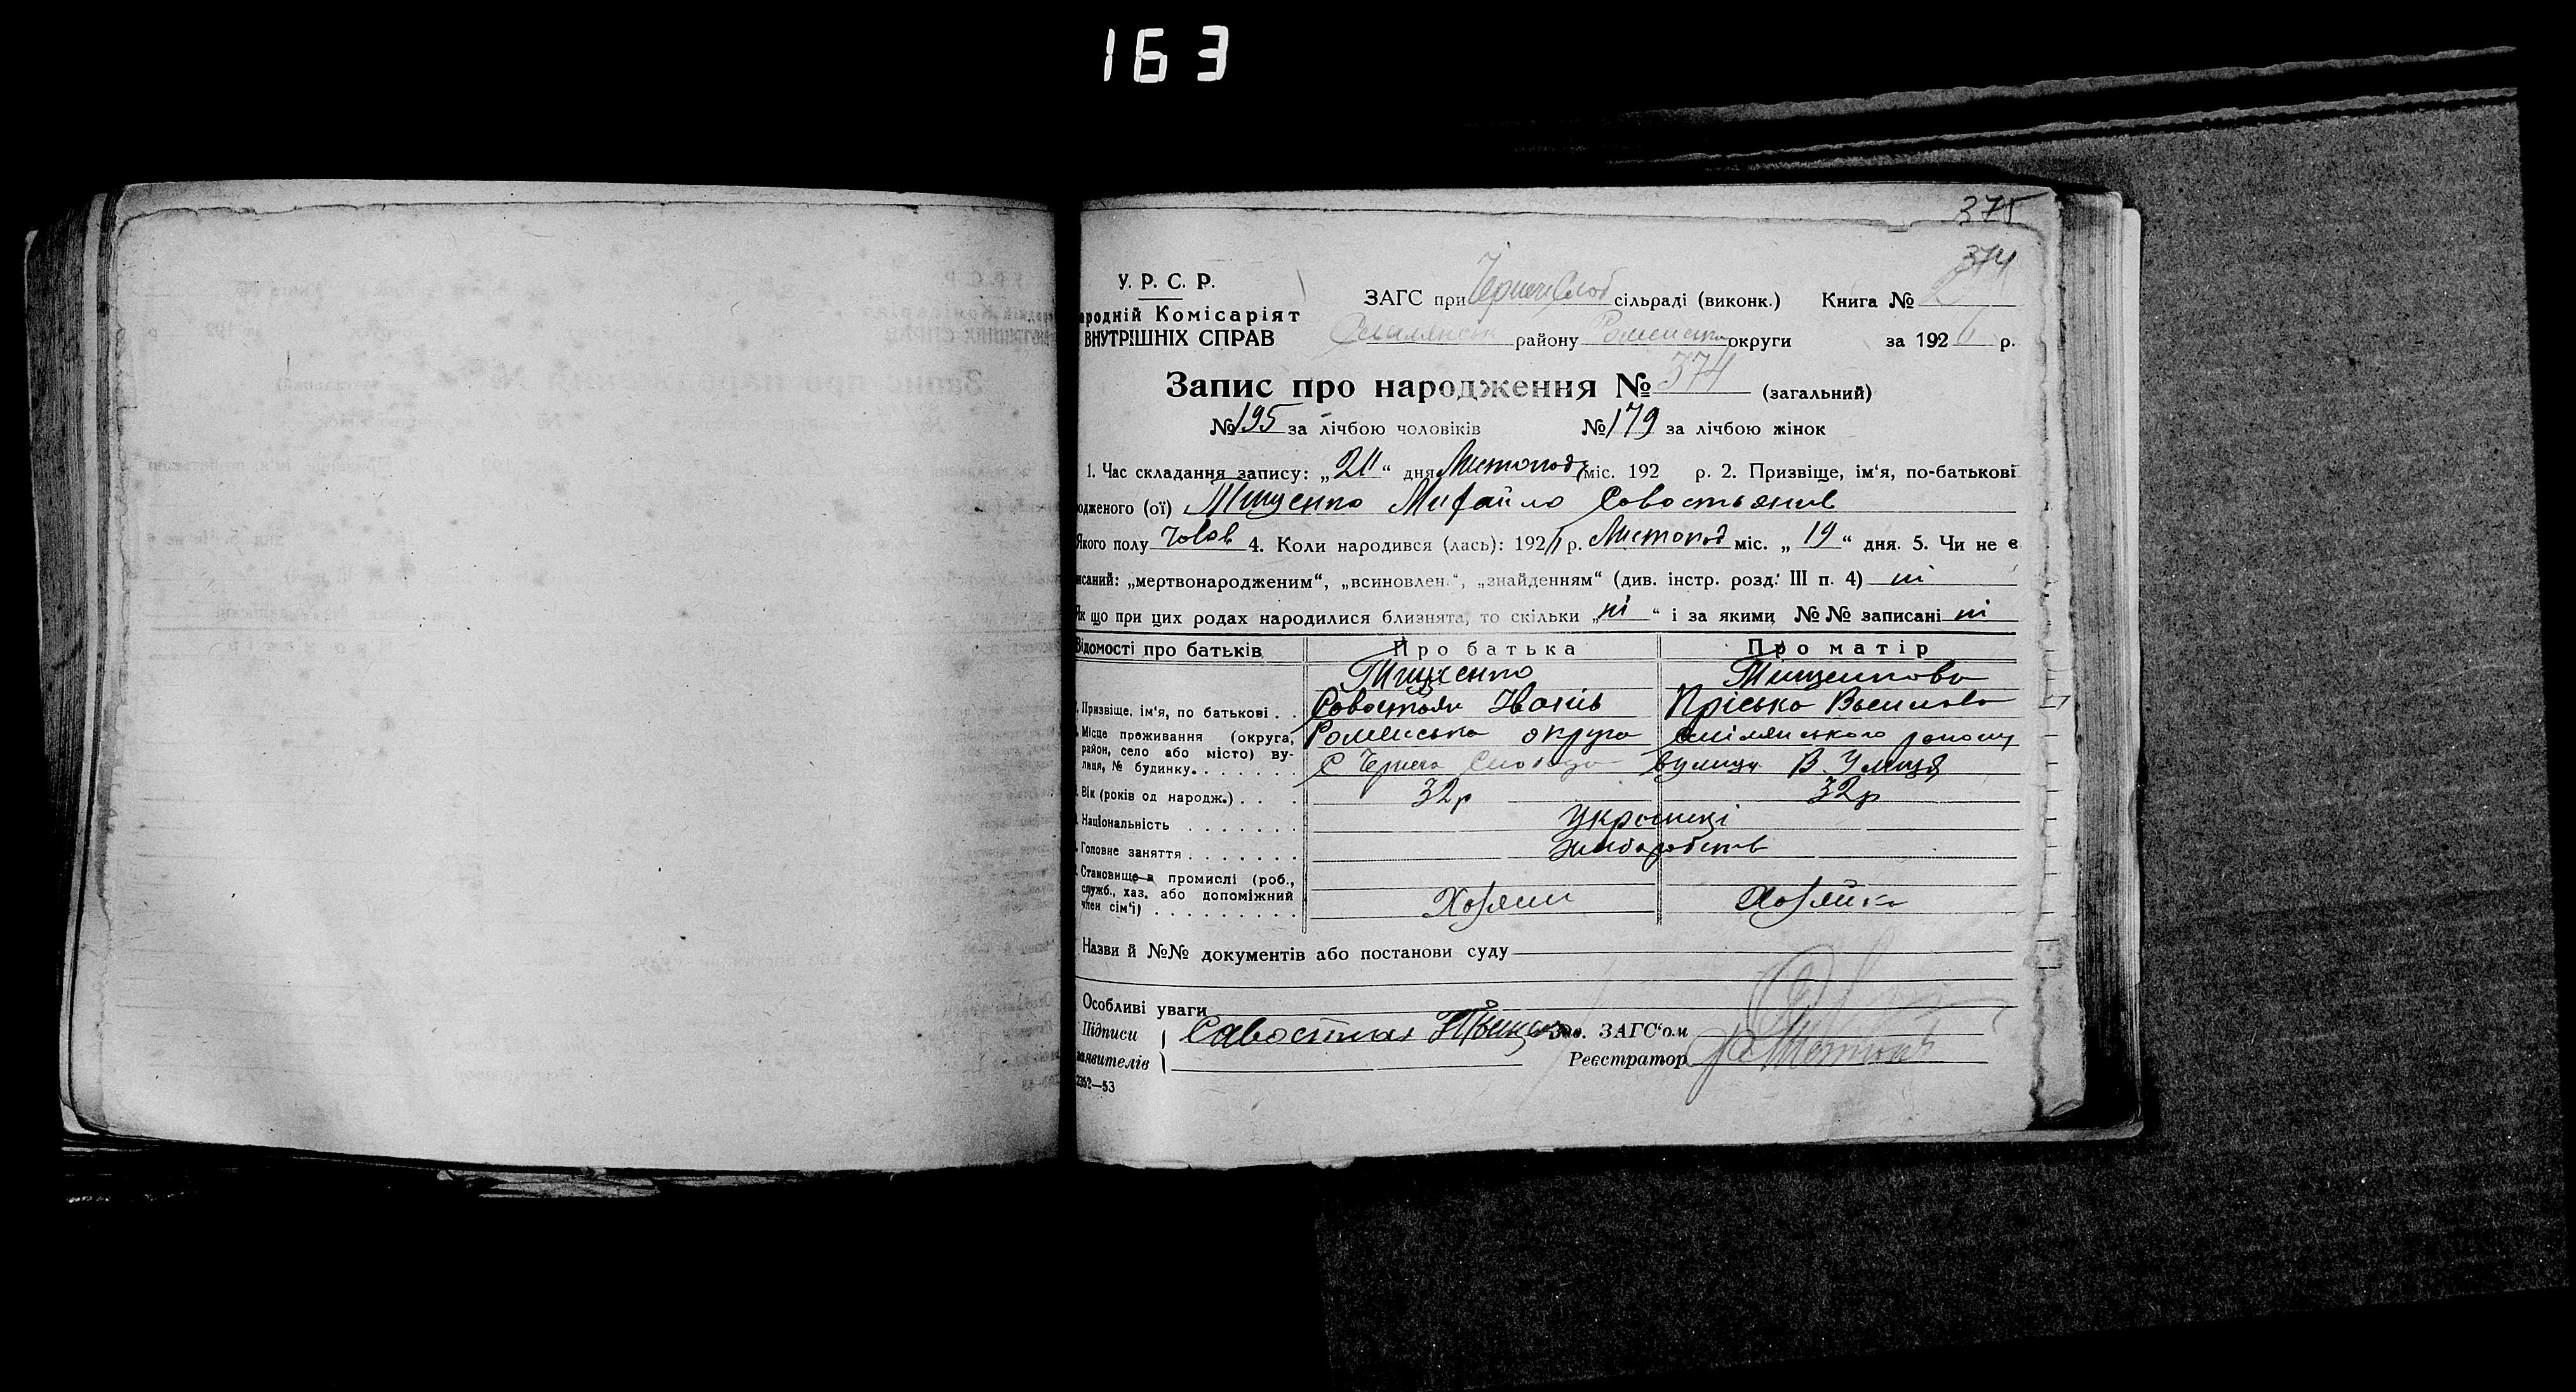 163
375
374
У. Р. С. Р.
ародній Комісаріят
ВНУТРІШНІХ СПРАВ
ЗАГС при Чернечеслоб сільраді (виконк.) Книга № 2
району Роменської округи за 1926 р.
Запис про народження № 374 (загальний)
№ 195 за лічбою чоловіків № 179 за лічбою жінок
1. Час складання запису: „21“ дня Листопада міс. 192 р. 2. Призвіще, ім‘я, по-батькові
одженого (ої) Тищенко Михайло Совостьянів
Якого полу чолов 4. Коли народився (лась): 1926 р. Листопад міс. „19“ дня. 5. Чи не є
исаний: „мертвонародженим“, „всиновлен.“, „знайденням“ (див. інстр. розд. III п. 4) ні
Як що при цих родах народилися близнята, то скільки „ні“ і за якими №№ записані ні
Відомості про батьків Про батька Про матір
Тищенко Тищенкова
Призвіще, ім'я, по батькові . . Совостьян Іванів Пріська Василева
Місце проживання (округа, Роменська округа Смілянського району
район, село або місто) ву-
лиця, № будинку. С Чернеча Слобода вулиця В. Улиця
Вік (років од народж.) . . . 32р 32р
Національність Українці
Головне заняття Хліборобств
Становище в промислі (роб.,
служб., хаз. або допоміжний
член сім'ї) Хозяин Хозяйка
Назви й №№ документів або постанови суду
Особливі уваги
Підписи Савостиан Тищенко Зав. ЗАГС‘ом
заявителів Реєстратор
2352—53